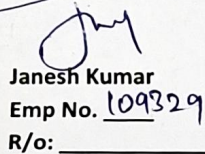 Janesh Kumar
Emp No. 109329
R/o: